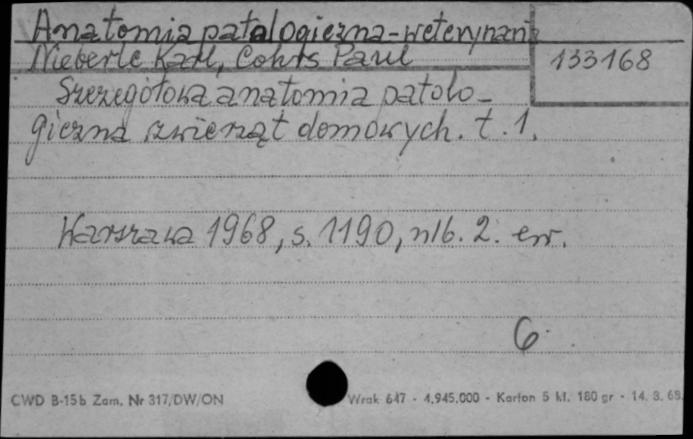 Anatomia patologiczna-weterynaria
Nieberle Karl, Cohrs Paul
133168
Szczegółowa anatomia patolo-
giczna zwierząt domowych. t. 1.
Warszawa 1968, s. 1190, nlb. 2. err.
6.
CWD B-15b Zam. Nr 317/DW/ON
Wrak 647 - 4.945.000 - Karton 5 kl. 180 gr - 14. 3. 68.